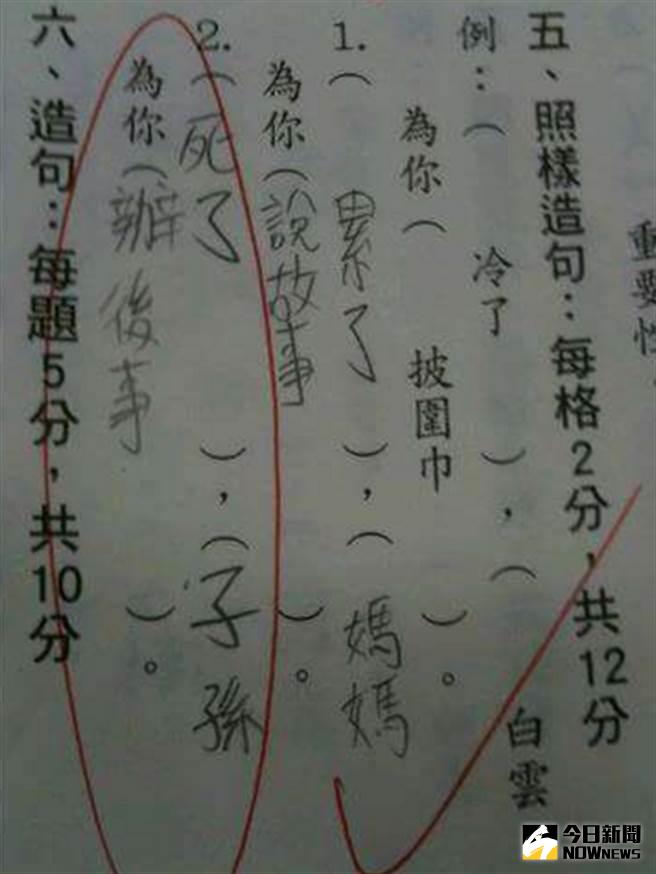 重要性
五、照樣造句：每格2分，共12分
例：（ 冷了 ），（ 白雲
為你（ 披圍巾 ）。
1.（ 累了 ），（ 媽媽
為你（說故事 ）。
2.（死了 ），（子孫
為你（辦後事 ）。
六、造句：每題5分，共10分
今日新聞
NOWNEWS